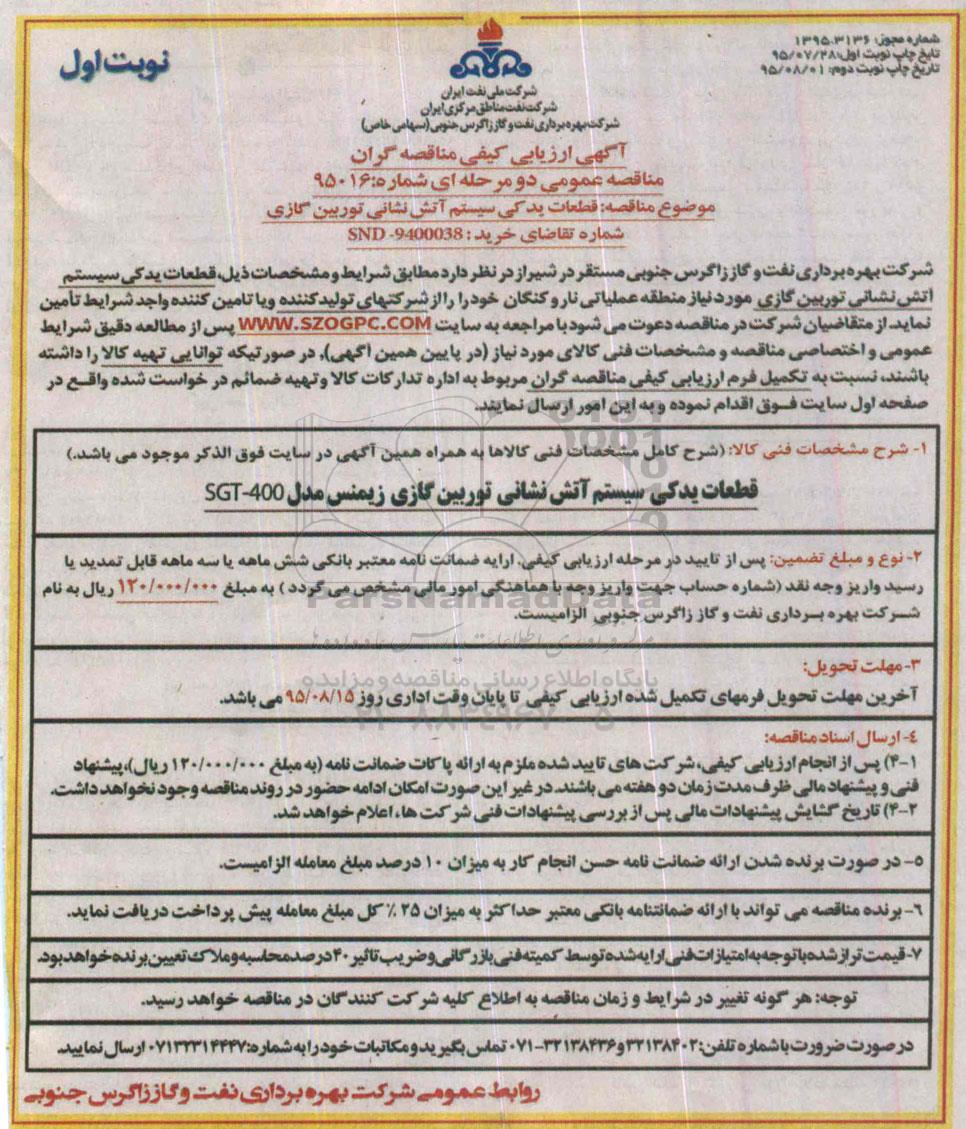 شماره مجوز: ۱۳۹۵.۳۱۳۶
تایخ چاپ نوبت اول: ۹۵/۰۷/۲۸
تاریخ چاپ نوبت دوم: ۹۵/۰۸/۰۱
نوبت اول
شرکت ملی نفت ایران
شرکت نفت مناطق مرکزی ایران
شرکت بهره برداری نفت و گاز زاگرس جنوبی (سهامی خاص)
آگهی ارزیابی کیفی مناقصه گران
مناقصه عمومی دو مرحله ای شماره: ۹۵۰۱۶
موضوع مناقصه: قطعات یدکی سیستم آتش نشانی توربین گازی
شماره تقاضای خرید : SND -9400038
شرکت بهره برداری نفت و گاز زاگرس جنوبی مستقر در شیراز در نظر دارد مطابق شرایط و مشخصات ذیل، قطعات یدکی سیستم
آتش نشانی توربین گازی مورد نیاز منطقه عملیاتی نار و کنگان خود را از شرکتهای تولید کننده و یا تامین کننده واجد شرایط تأمین
نماید. از متقاضیان شرکت در مناقصه دعوت می شود با مراجعه به سایت WWW.SZOGPC.COM پس از مطالعه دقیق شرایط
عمومی و اختصاصی مناقصه و مشخصات فنی کالای مورد نیاز (در پایین همین آگهی)، در صورتیکه توانایی تهیه کالا را داشته
باشند، نسبت به تکمیل فرم ارزیابی کیفی مناقصه گران مربوط به اداره تدارکات کالا و تهیه ضمائم در خواست شده واقع در
صفحه اول سایت فوق اقدام نموده و به این امور ارسال نمایند.
۱- شرح مشخصات فنی کالا: (شرح کامل مشخصات فنی کالاها به همراه همین آگهی در سایت فوق الذکر موجود می باشد.)
قطعات یدکی سیستم آتش نشانی توربین گازی زیمنس مدل SGT-400
۲- نوع و مبلغ تضمین: پس از تایید در مرحله ارزیابی کیفی، ارایه ضمانت نامه معتبر بانکی شش ماهه یا سه ماهه قابل تمدید یا
رسید واریز وجه نقد (شماره حساب جهت واریز وجه با هماهنگی امور مالی مشخص می گردد ) به مبلغ ۱۲۰/۰۰۰/۰۰۰ ریال به نام
شرکت بهره برداری نفت و گاز زاگرس جنوبی الزامیست.
ParsNamadData
۳- مهلت تحویل:
پایگاه اطلاع رسانی مناقصه و مزایده
آخرین مهلت تحویل فرمهای تکمیل شده ارزیابی کیفی تا پایان وقت اداری روز ۹۵/۰۸/۱۵ می باشد.
٤- ارسال اسناد مناقصه:
۴-۱) پس از انجام ارزیابی کیفی، شرکت های تایید شده ملزم به ارائه پاکات ضمانت نامه (به مبلغ ۱۲۰/۰۰۰/۰۰۰ ریال)، پیشنهاد
فنی و پیشنهاد مالی ظرف مدت زمان دو هفته می باشند. در غیر این صورت امکان ادامه حضور در روند مناقصه وجود نخواهد داشت.
۴-۲) تاریخ گشایش پیشنهادات مالی پس از بررسی پیشنهادات فنی شرکت ها، اعلام خواهد شد.
٥- در صورت برنده شدن ارائه ضمانت نامه حسن انجام کار به میزان ۱۰ درصد مبلغ معامله الزامیست.
٦- برنده مناقصه می تواند با ارائه ضمانتنامه بانکی معتبر حداکثر به میزان ۲۵ ٪ کل مبلغ معامله پیش پرداخت دریافت نماید.
۷- قیمت تراز شده با توجه به امتیازات فنی ارایه شده توسط کمیته فنی بازرگانی و ضریب تاثیر ۴۰ درصد محاسبه و ملاک تعیین برنده خواهد بود.
توجه: هر گونه تغییر در شرایط و زمان مناقصه به اطلاع کلیه شرکت کنندگان در مناقصه خواهد رسید.
در صورت ضرورت با شماره تلفن: ۳۲۱۳۸۴۰۲ و ۳۲۱۳۸۴۳۶-۰۷۱ تماس بگیرید و مکاتبات خود را به شماره: ۰۷۱۳۲۳۱۴۴۴۷ ارسال نمایید.
روابط عمومی شرکت بهره برداری نفت و گاز زاگرس جنوبی